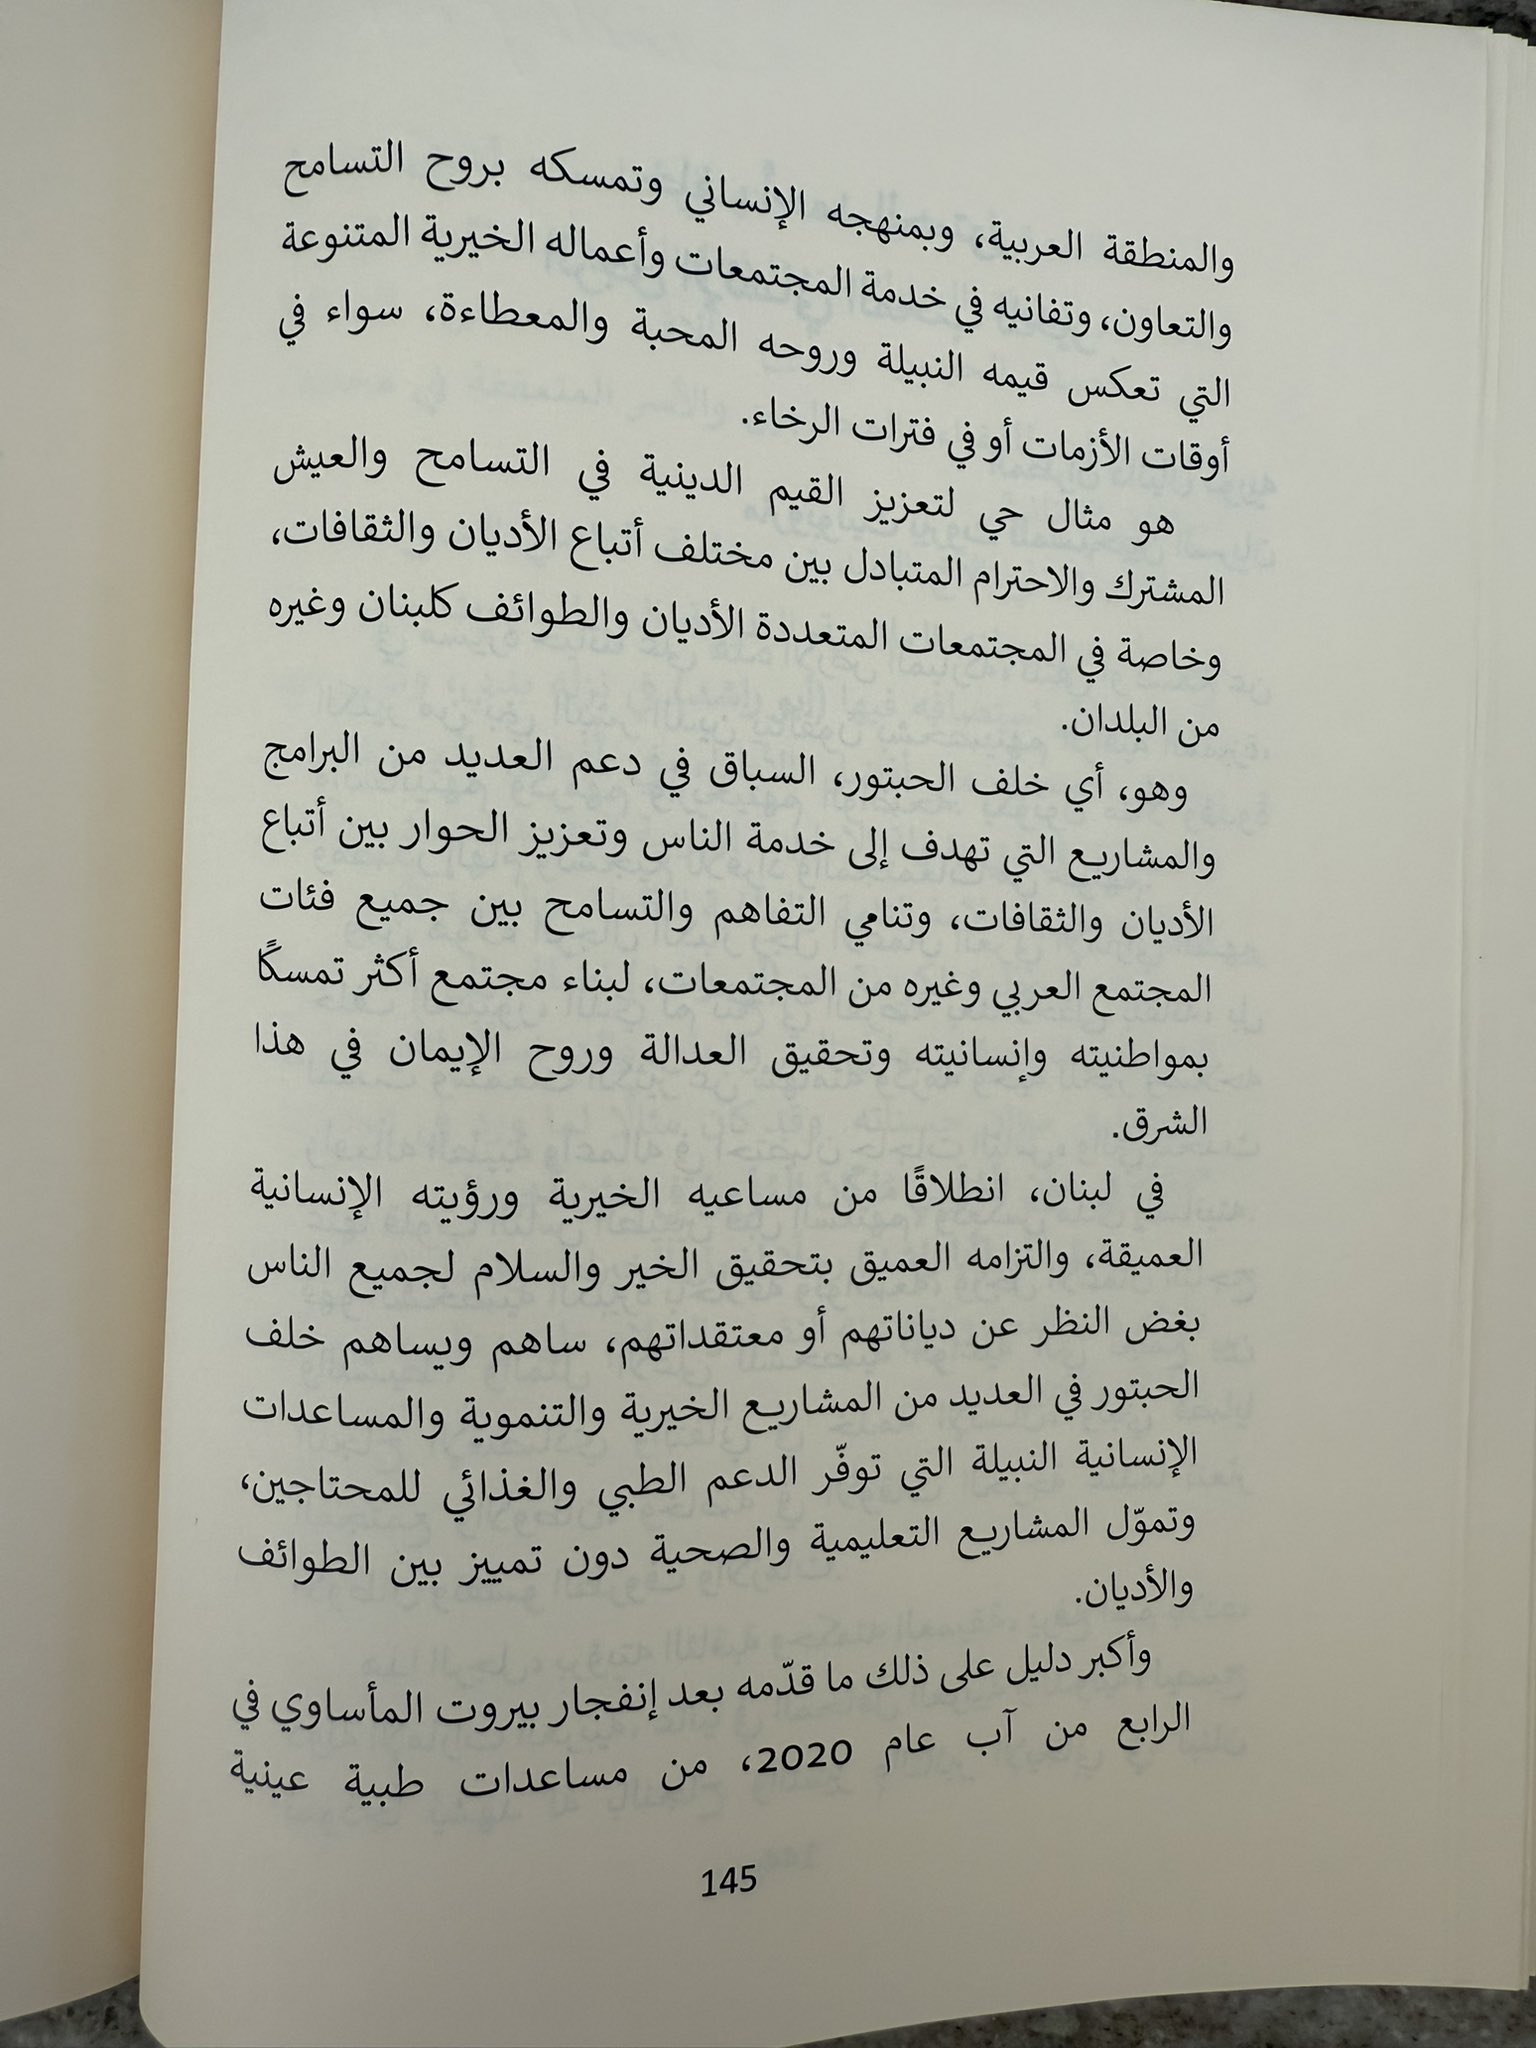 والمنطقة العربية، وبمنهجه الإنساني وتمسكه بروح التسامح
والتعاون، وتفانيه في خدمة المجتمعات وأعماله الخيرية المتنوعة
التي تعكس قيمه النبيلة وروحه المحبة والمعطاءة، سواء في
أوقات الأزمات أو في فترات الرخاء.
هو مثال حي لتعزيز القيم الدينية في التسامح والعيش
المشترك والاحترام المتبادل بين مختلف أتباع الأديان والثقافات،
وخاصة في المجتمعات المتعددة الأديان والطوائف كلبنان وغيره
من البلدان.
وهو، أي خلف الحبتور، السباق في دعم العديد من البرامج
والمشاريع التي تهدف إلى خدمة الناس وتعزيز الحوار بين أتباع
الأديان والثقافات، وتنامي التفاهم والتسامح بين جميع فئات
المجتمع العربي وغيره من المجتمعات، لبناء مجتمع أكثر تمسكًا
بمواطنيته وإنسانيته وتحقيق العدالة وروح الإيمان في هذا
الشرق.
في لبنان، انطلاقًا من مساعيه الخيرية ورؤيته الإنسانية
العميقة، والتزامه العميق بتحقيق الخير والسلام لجميع الناس
بغض النظر عن دياناتهم أو معتقداتهم، ساهم ويساهم خلف
الحبتور في العديد من المشاريع الخيرية والتنموية والمساعدات
الإنسانية النبيلة التي توفّر الدعم الطبي والغذائي للمحتاجين،
وتموّل المشاريع التعليمية والصحية دون تمييز بين الطوائف
والأديان.
وأكبر دليل على ذلك ما قدّمه بعد إنفجار بيروت المأساوي في
الرابع من آب عام 2020، من مساعدات طبية عينية
145